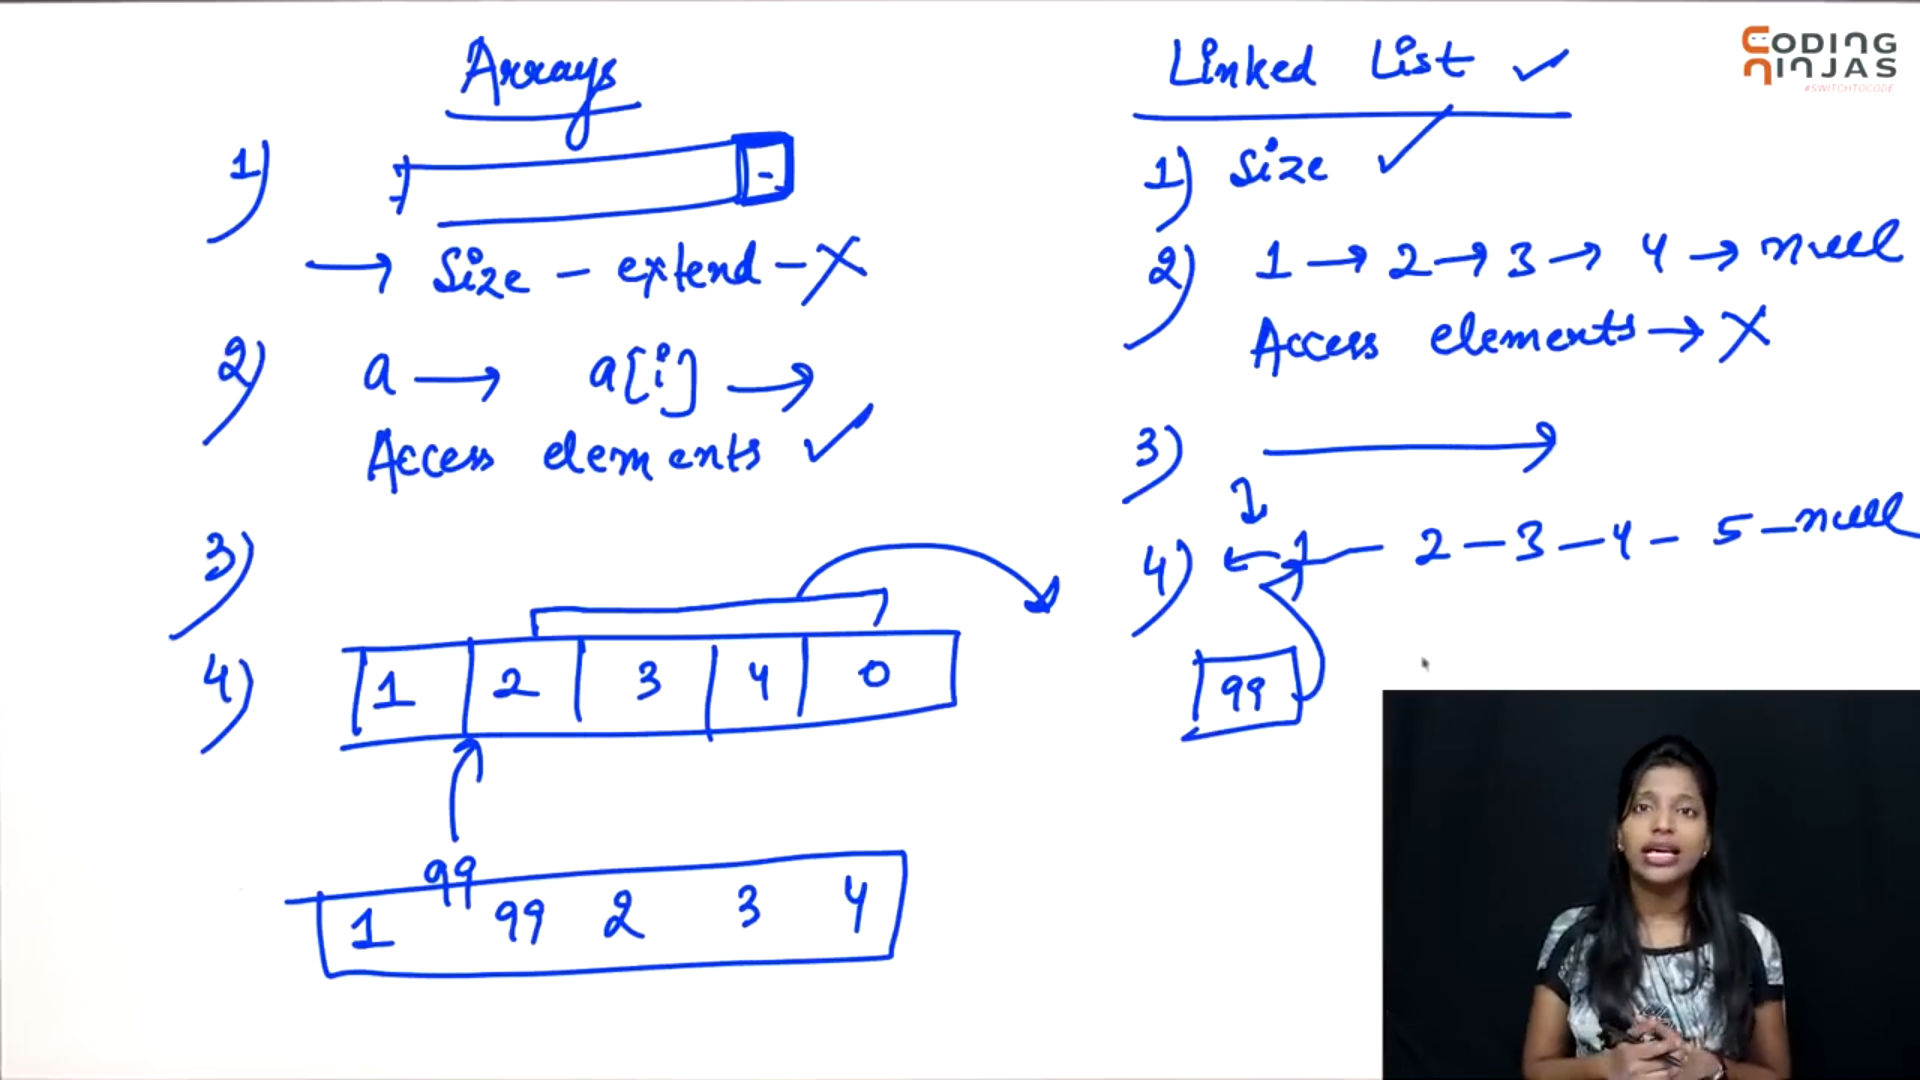 Arrays
1)
→ Size - extend - X
2) a → a[i] →
Access elements ✓
3)
4) 1 2 3 4 0
99
1 99 2 3 4
Linked List ✓
1) Size ✓
2) 1 → 2 → 3 → 4 → null
Access elements → X
3) →
4) ← 1 - 2 - 3 - 4 - 5 - null
99
CODING
NINJAS
#SWITCHTOCODE